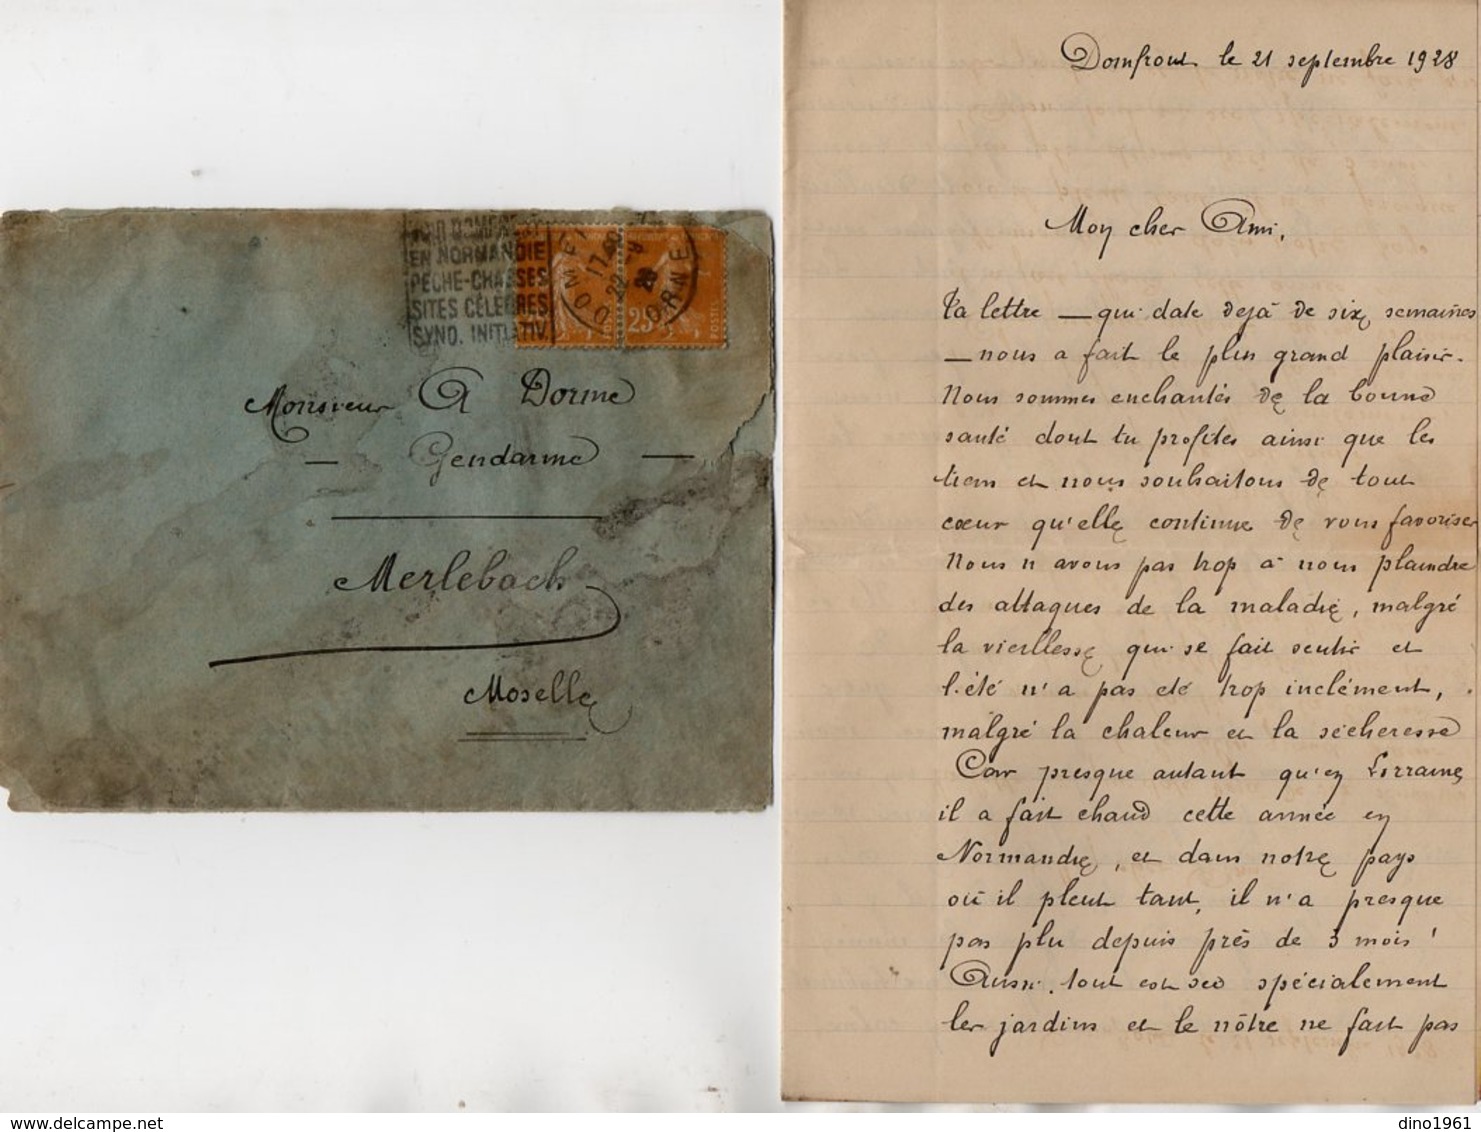 EN NORMANDIE
PECHE-CHASSES
SITES CÉLÈBRES
SYND. INITIATIV.
DOMF
17
22 -9
28
ORNE
25
Monsieur A Dorme
— Gendarme —
Merlebach
Moselle
Domfront le 21 septembre 1928
Mon cher Ami,
Ta lettre — qui date dejà de six semaines
— nous a fait le plus grand plaisir.
Nous sommes enchantés de la bonne
santé dont tu profites ainsi que les
tiens et nous souhaitons de tout
cœur qu'elle continue de vous favoriser
Nous n avons pas trop à nous plaindre
des attaques de la maladie, malgré
la vieillesse qui se fait sentir et
l'été n'a pas été trop inclément,
malgré la chaleur et la sécheresse
Car presque autant qu'en Lorraine
il a fait chaud cette année en
Normandie, et dans notre pays
où il pleut tant, il n'a presque
pas plu depuis près de 3 mois !
Aussi. tout est sec spécialement
les jardins et le nôtre ne fait pas
dino1961